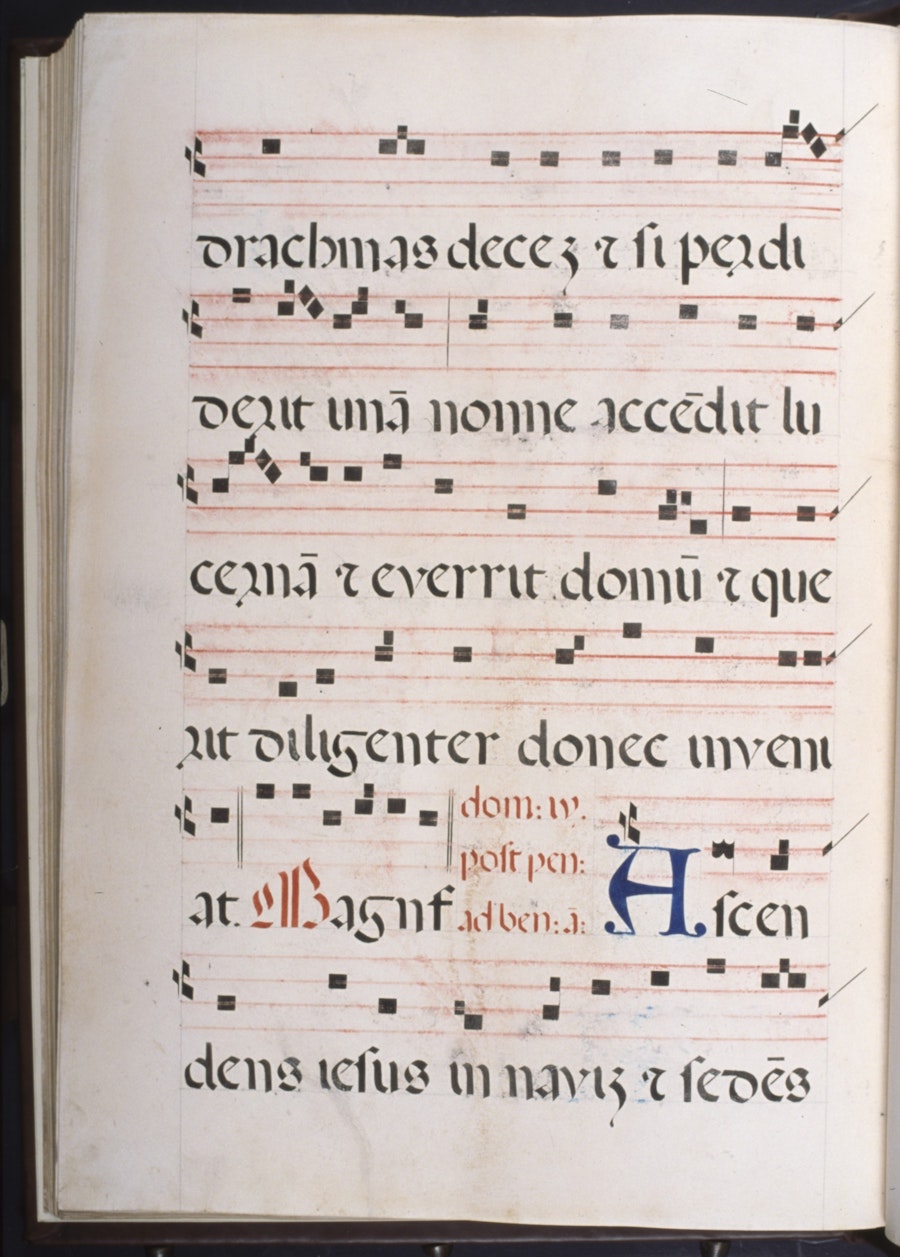 drachmas decez ⁊ si perdi
derit unā nonne accēdit lu
cernā ⁊ everrit domū ⁊ que
rit diligenter donec inveni
at. Magnf dom: iv. post pen: ad ben: ā: Ascen
dens iesus in naviz ⁊ sedēs